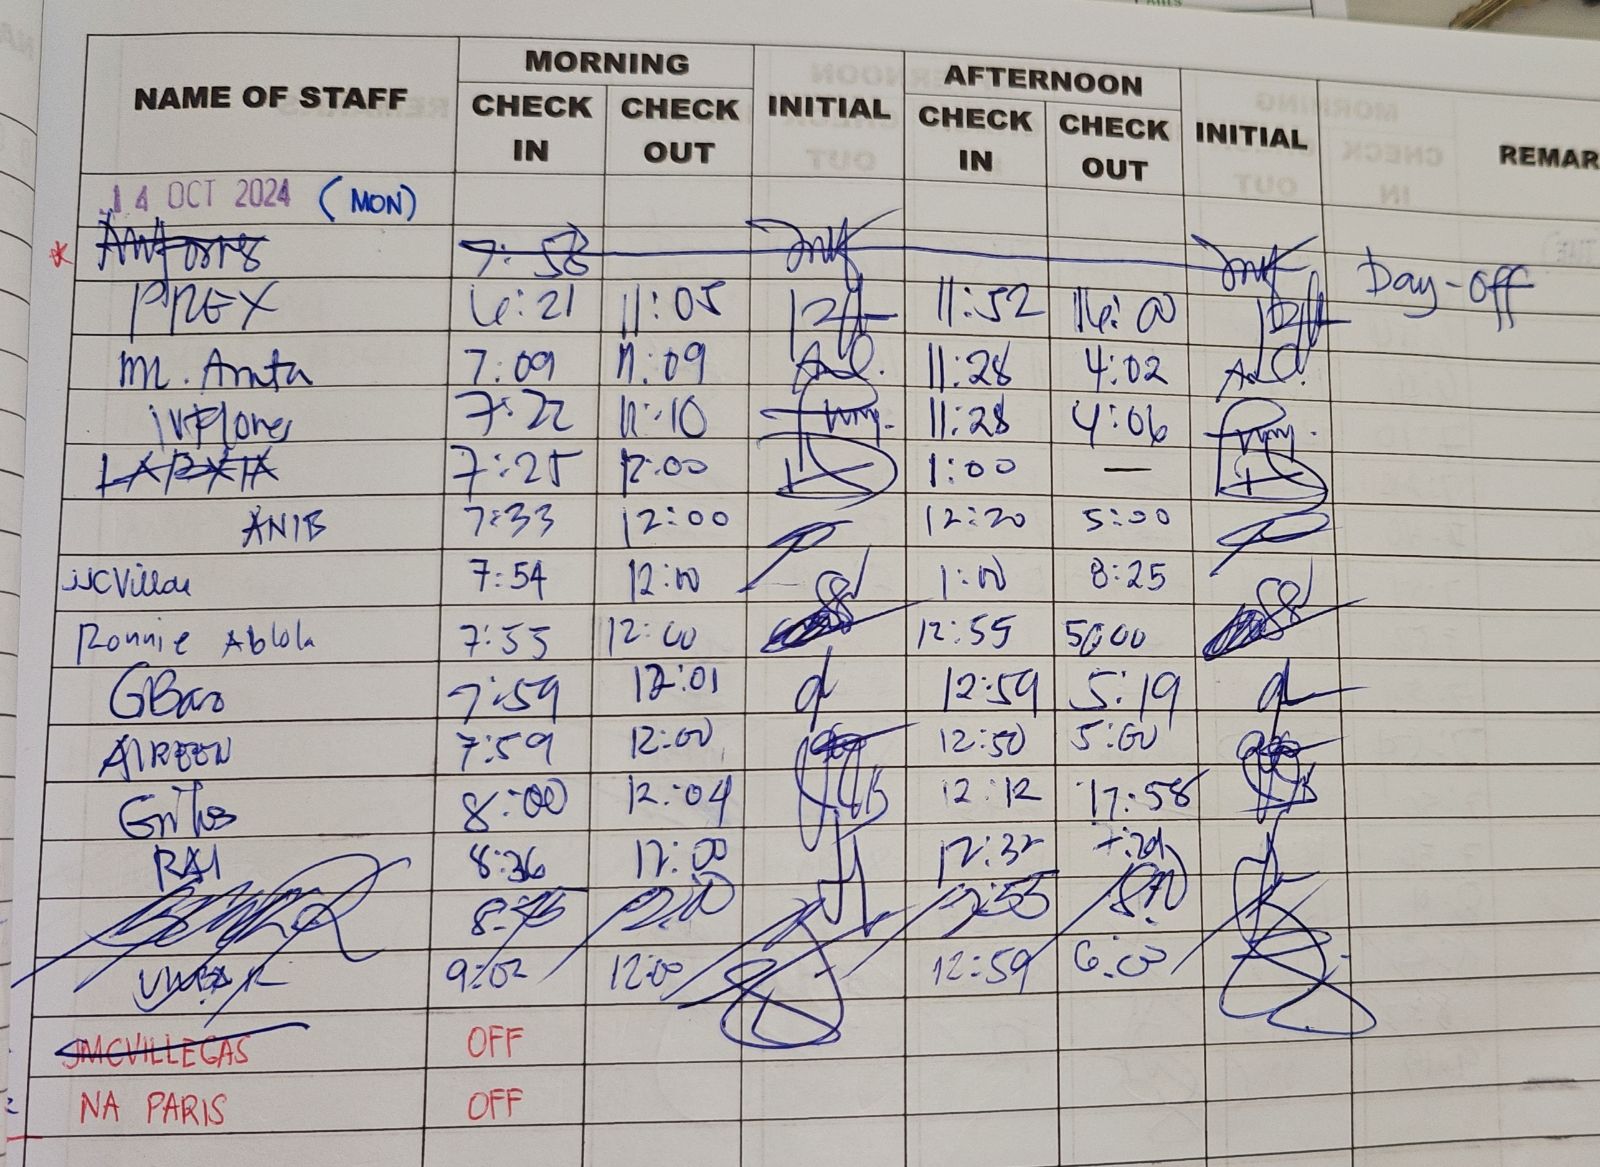 NAME OF STAFF MORNING INITIAL AFTERNOON INITIAL REMAR
CHECK IN CHECK OUT CHECK IN CHECK OUT
14 OCT 2024 (MON)
* 7:58 Day-off
PREX 6:21 11:05 11:52 16:00
M. Anita 7:09 11:09 11:28 4:02
7:22 11:10 11:28 4:06
7:25 12:00 1:00 —
ANIB 7:33 12:00 12:20 5:00
JJCVillar 7:54 12:00 1:00 8:25
Ronnie Ablola 7:55 12:00 12:55 5:00
GBao 7:59 12:01 12:59 5:19
AIREEN 7:59 12:00 12:50 5:00
8:00 12:04 12:12 17:58
RAI 8:36 12:00 12:32
8:45 12:00 12:55
9:02 12:00 12:59 6:00
JMCVILLEGAS OFF
NA PARIS OFF